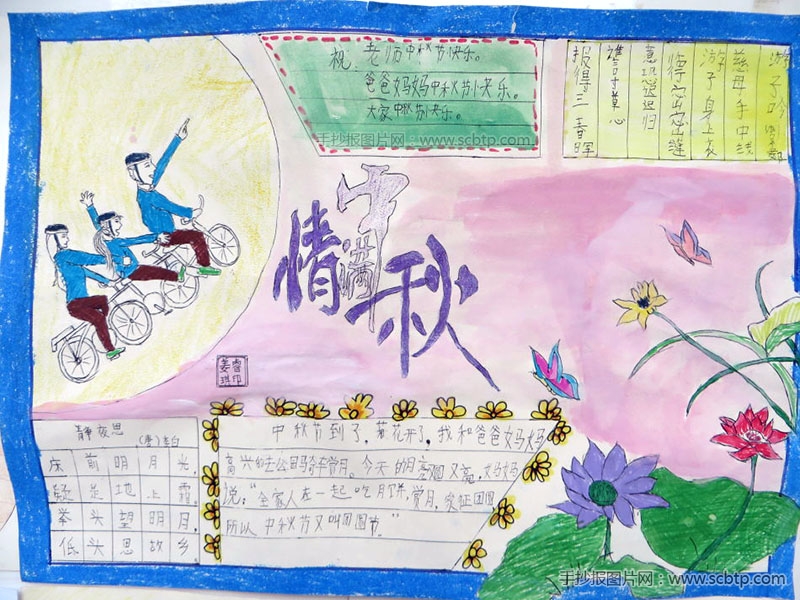 祝 老师中秋节快乐。
爸爸妈妈中秋节快乐。
大家中秋节快乐。
手抄报图片网：www.scbtp.com
游子吟
慈母手中线
游子身上衣
临行密密缝
意恐迟迟归
谁言寸草心
报得三春晖
情满中秋
静夜思 (唐)李白
床前明月光
疑是地上霜
举头望明月
低头思故乡
中秋节到了，菊花开了，我和爸爸妈妈
高兴的去公园骑车赏月。今天的月亮圆又高，妈妈
说："全家人在一起吃月饼，赏月，象征团圆
所以中秋节又叫团圆节。"
手抄报图片网：www.scbtp.com